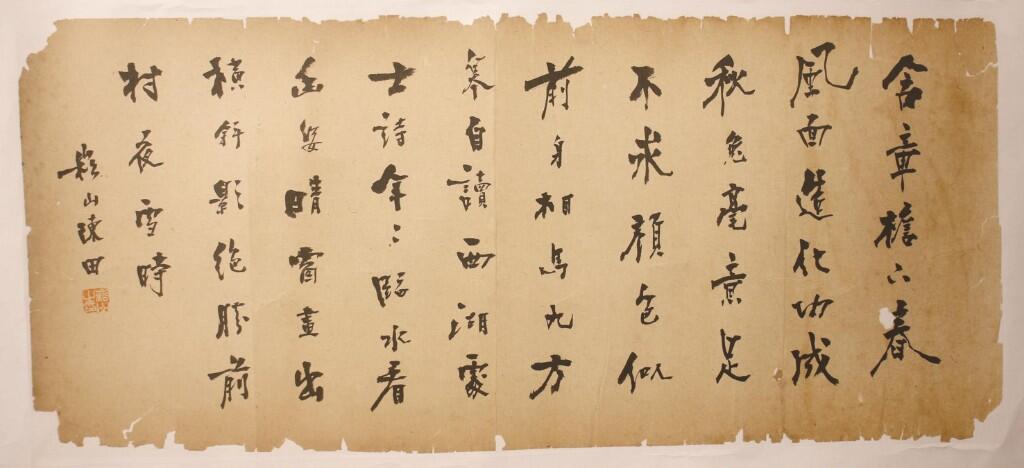 含章檐下春
風面造化功成
秋兔毫意足
不求顔色似
前身相馬九方
皋自讀西湖處
士詩年々臨水看
幽姿晴窗畫出
橫斜影絶勝前
村夜雪時
山陳田